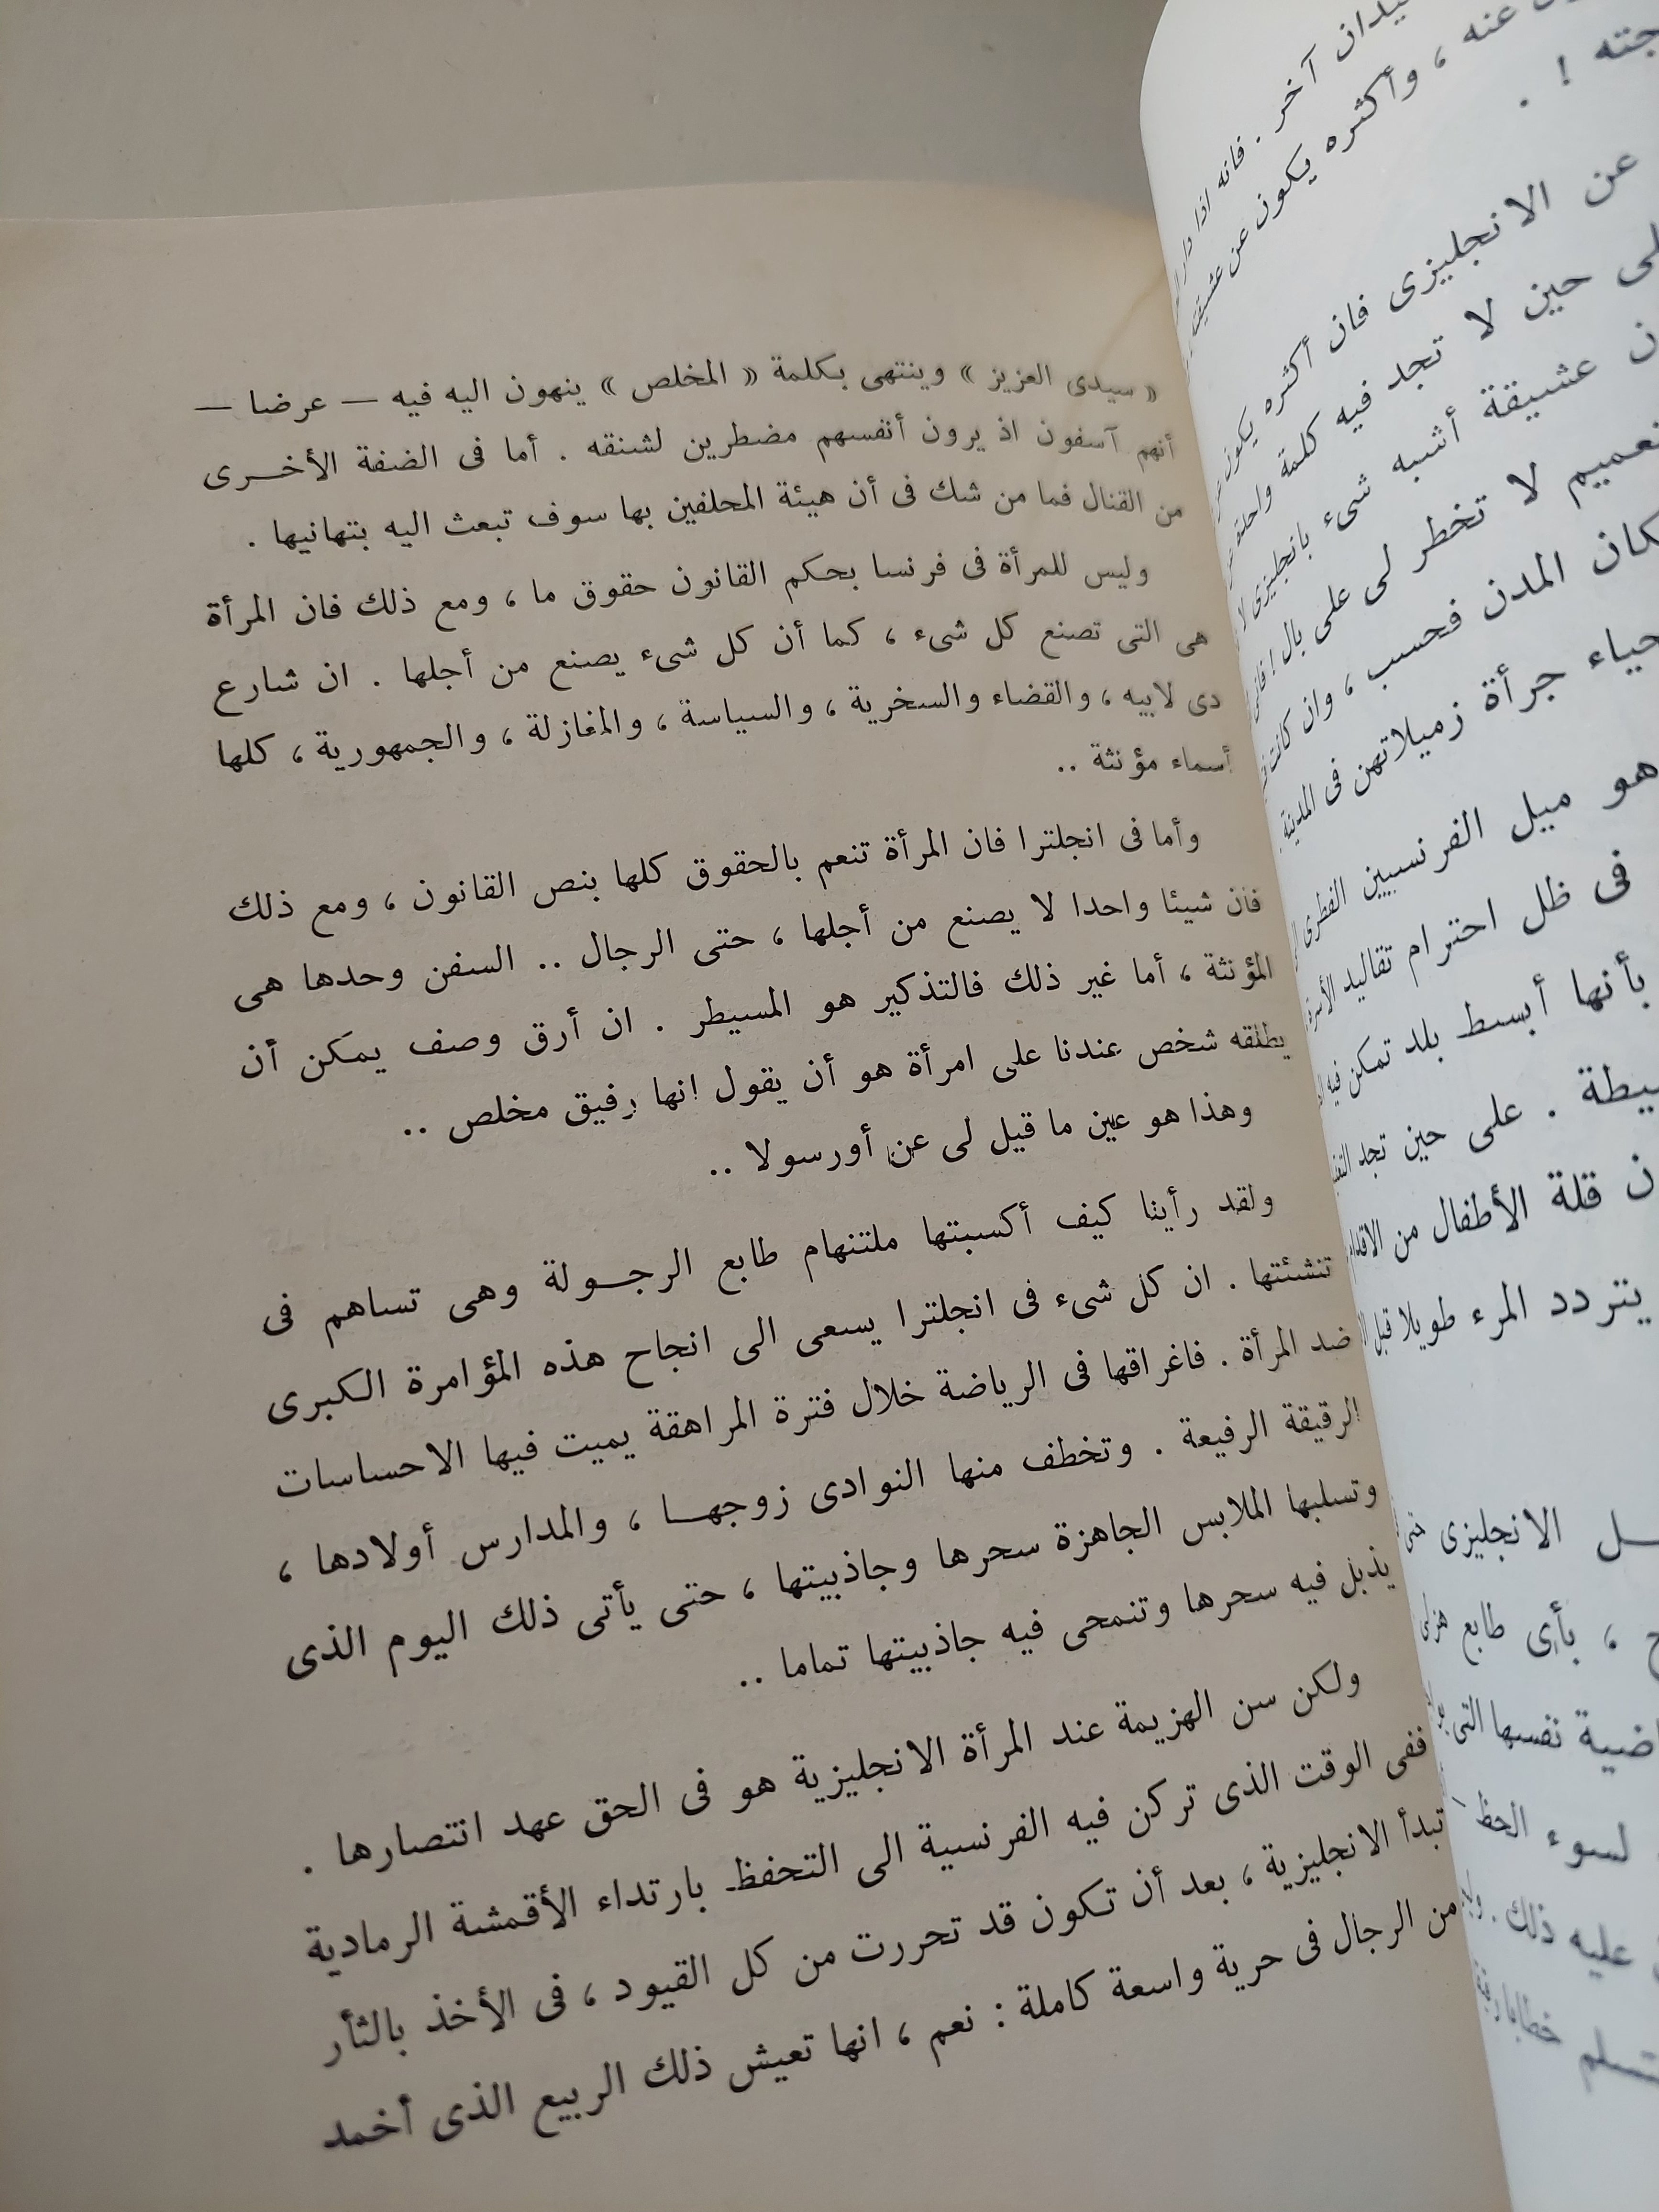 يدان آخر . فانه اذا دار
عنه ، وأكثره يكون عن عشيقته
جته ! .
عن الانجليزى فان أكثره يكون
لى حين لا تجد فيه كلمة واحدة
ن عشيقة أشبه شىء بانجليزى لا
تعميم لا تخطر لى على بال ! فانى
كان المدن فحسب ، وان كانت
حياء جرأة زميلاتهن فى المدينة
هو ميل الفرنسيين الفطرى
فى ظل احترام تقاليد الأسرة
بأنها أبسط بلد تمكن فيه
يطة . على حين تجد
ن قلة الأطفال من
يتردد المرء طويلا قبل
ـل الانجليزى حتى
ح ، بأى طابع هزلى
اضية نفسها التى
لسوء الحظ
عليه ذلك .
« سيدى العزيز » وينتهى بكلمة « المخلص » ينهون اليه فيه — عرضا —
أنهم آسفون اذ يرون أنفسهم مضطرين لشنقه . أما فى الضفة الأخـرى
من القنال فما من شك فى أن هيئة المحلفين بها سوف تبعث اليه بتهانيها .
وليس للمرأة فى فرنسا بحكم القانون حقوق ما ، ومع ذلك فان المرأة
هى التى تصنع كل شىء ، كما أن كل شىء يصنع من أجلها . ان شارع
دى لابيه ، والقضاء والسخرية ، والسياسة ، والمغازلة ، والجمهورية ، كلها
أسماء مؤنثة ..
وأما فى انجلترا فان المرأة تنعم بالحقوق كلها بنص القانون ، ومع ذلك
فان شيئا واحدا لا يصنع من أجلها ، حتى الرجال .. السفن وحدها هى
المؤنثة ، أما غير ذلك فالتذكير هو المسيطر . ان أرق وصف يمكن أن
يطلقه شخص عندنا على امرأة هو أن يقول انها رفيق مخلص ..
وهذا هو عين ما قيل لى عن أورسولا ..
ولقد رأينا كيف أكسبتها ملتنهام طابع الرجـولة وهى تساهم فى
تنشئتها . ان كل شىء فى انجلترا يسعى الى انجاح هذه المؤامرة الكبرى
ضد المرأة . فاغراقها فى الرياضة خلال فترة المراهقة يميت فيها الاحساسات
الرقيقة الرفيعة . وتخطف منها النوادى زوجهـا ، والمدارس أولادها ،
وتسلبها الملابس الجاهزة سحرها وجاذبيتها ، حتى يأتى ذلك اليوم الذى
يذبل فيه سحرها وتنمحى فيه جاذبيتها تماما ..
ولكن سن الهزيمة عند المرأة الانجليزية هو فى الحق عهد انتصارها .
ففى الوقت الذى تركن فيه الفرنسية الى التحفظ بارتداء الأقمشة الرمادية
تبدأ الانجليزية ، بعد أن تكون قد تحررت من كل القيود ، فى الأخذ بالثأر
من الرجال فى حرية واسعة كاملة : نعم ، انها تعيش ذلك الربيع الذى أخمد